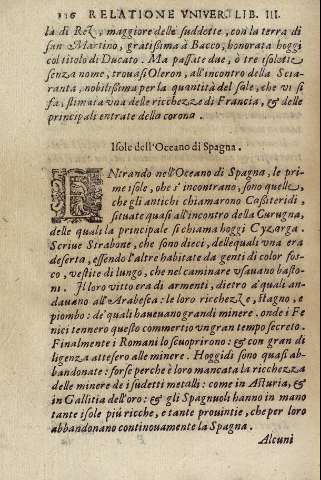 116 RELATIONE VNIVER. LIB. III.
la di Rez, maggiore delle suddette, con la terra di
san Martino, gratissima à Bacco, honorata hoggi
col titolo di Ducato. Ma passate due, ò tre isolette
senza nome, trouasi Oleron, all'incontro della Scia-
ranta, nobilissima per la quantità del sale, che vi si
fa, stimata vna delle ricchezze di Francia, & delle
principali entrate della corona.
Isole dell'Oceano di Spagna.
ENtrando nell'Oceano di Spagna, le pri
me isole, che s'incontrano, sono quelle,
che gli antichi chiamarono Cassiteridi,
situate quasi all'incontro della Curugna,
delle quali la principale si chiama hoggi Cyzarga.
Scriue Strabone, che sono dieci, delle quali vna era
deserta, essendo l'altre habitate da genti di color fos-
co, vestite di lungo, che nel caminare vsauano basto-
ni. Il loro vitto era di armenti, dietro a' quali an-
dauano all'Arabesca: le loro ricchezze, stagno, e
piombo: de' quali haueuano grandi minere. onde i Fe
nici tennero questo commertio vn gran tempo secreto.
Finalmente i Romani lo scuoprirono: & con gran di
ligenza attesero alle minere. Hoggidì sono quasi ab-
bandonate: forse perche è loro mancata la ricchezza
delle minere de i sudetti metalli: come in Asturia, &
in Gallitia dell'oro: & gli Spagnuoli hanno in mano
tante isole piú ricche, e tante prouintie, che per loro
abbandonano continouamente la Spagna.
Alcuni